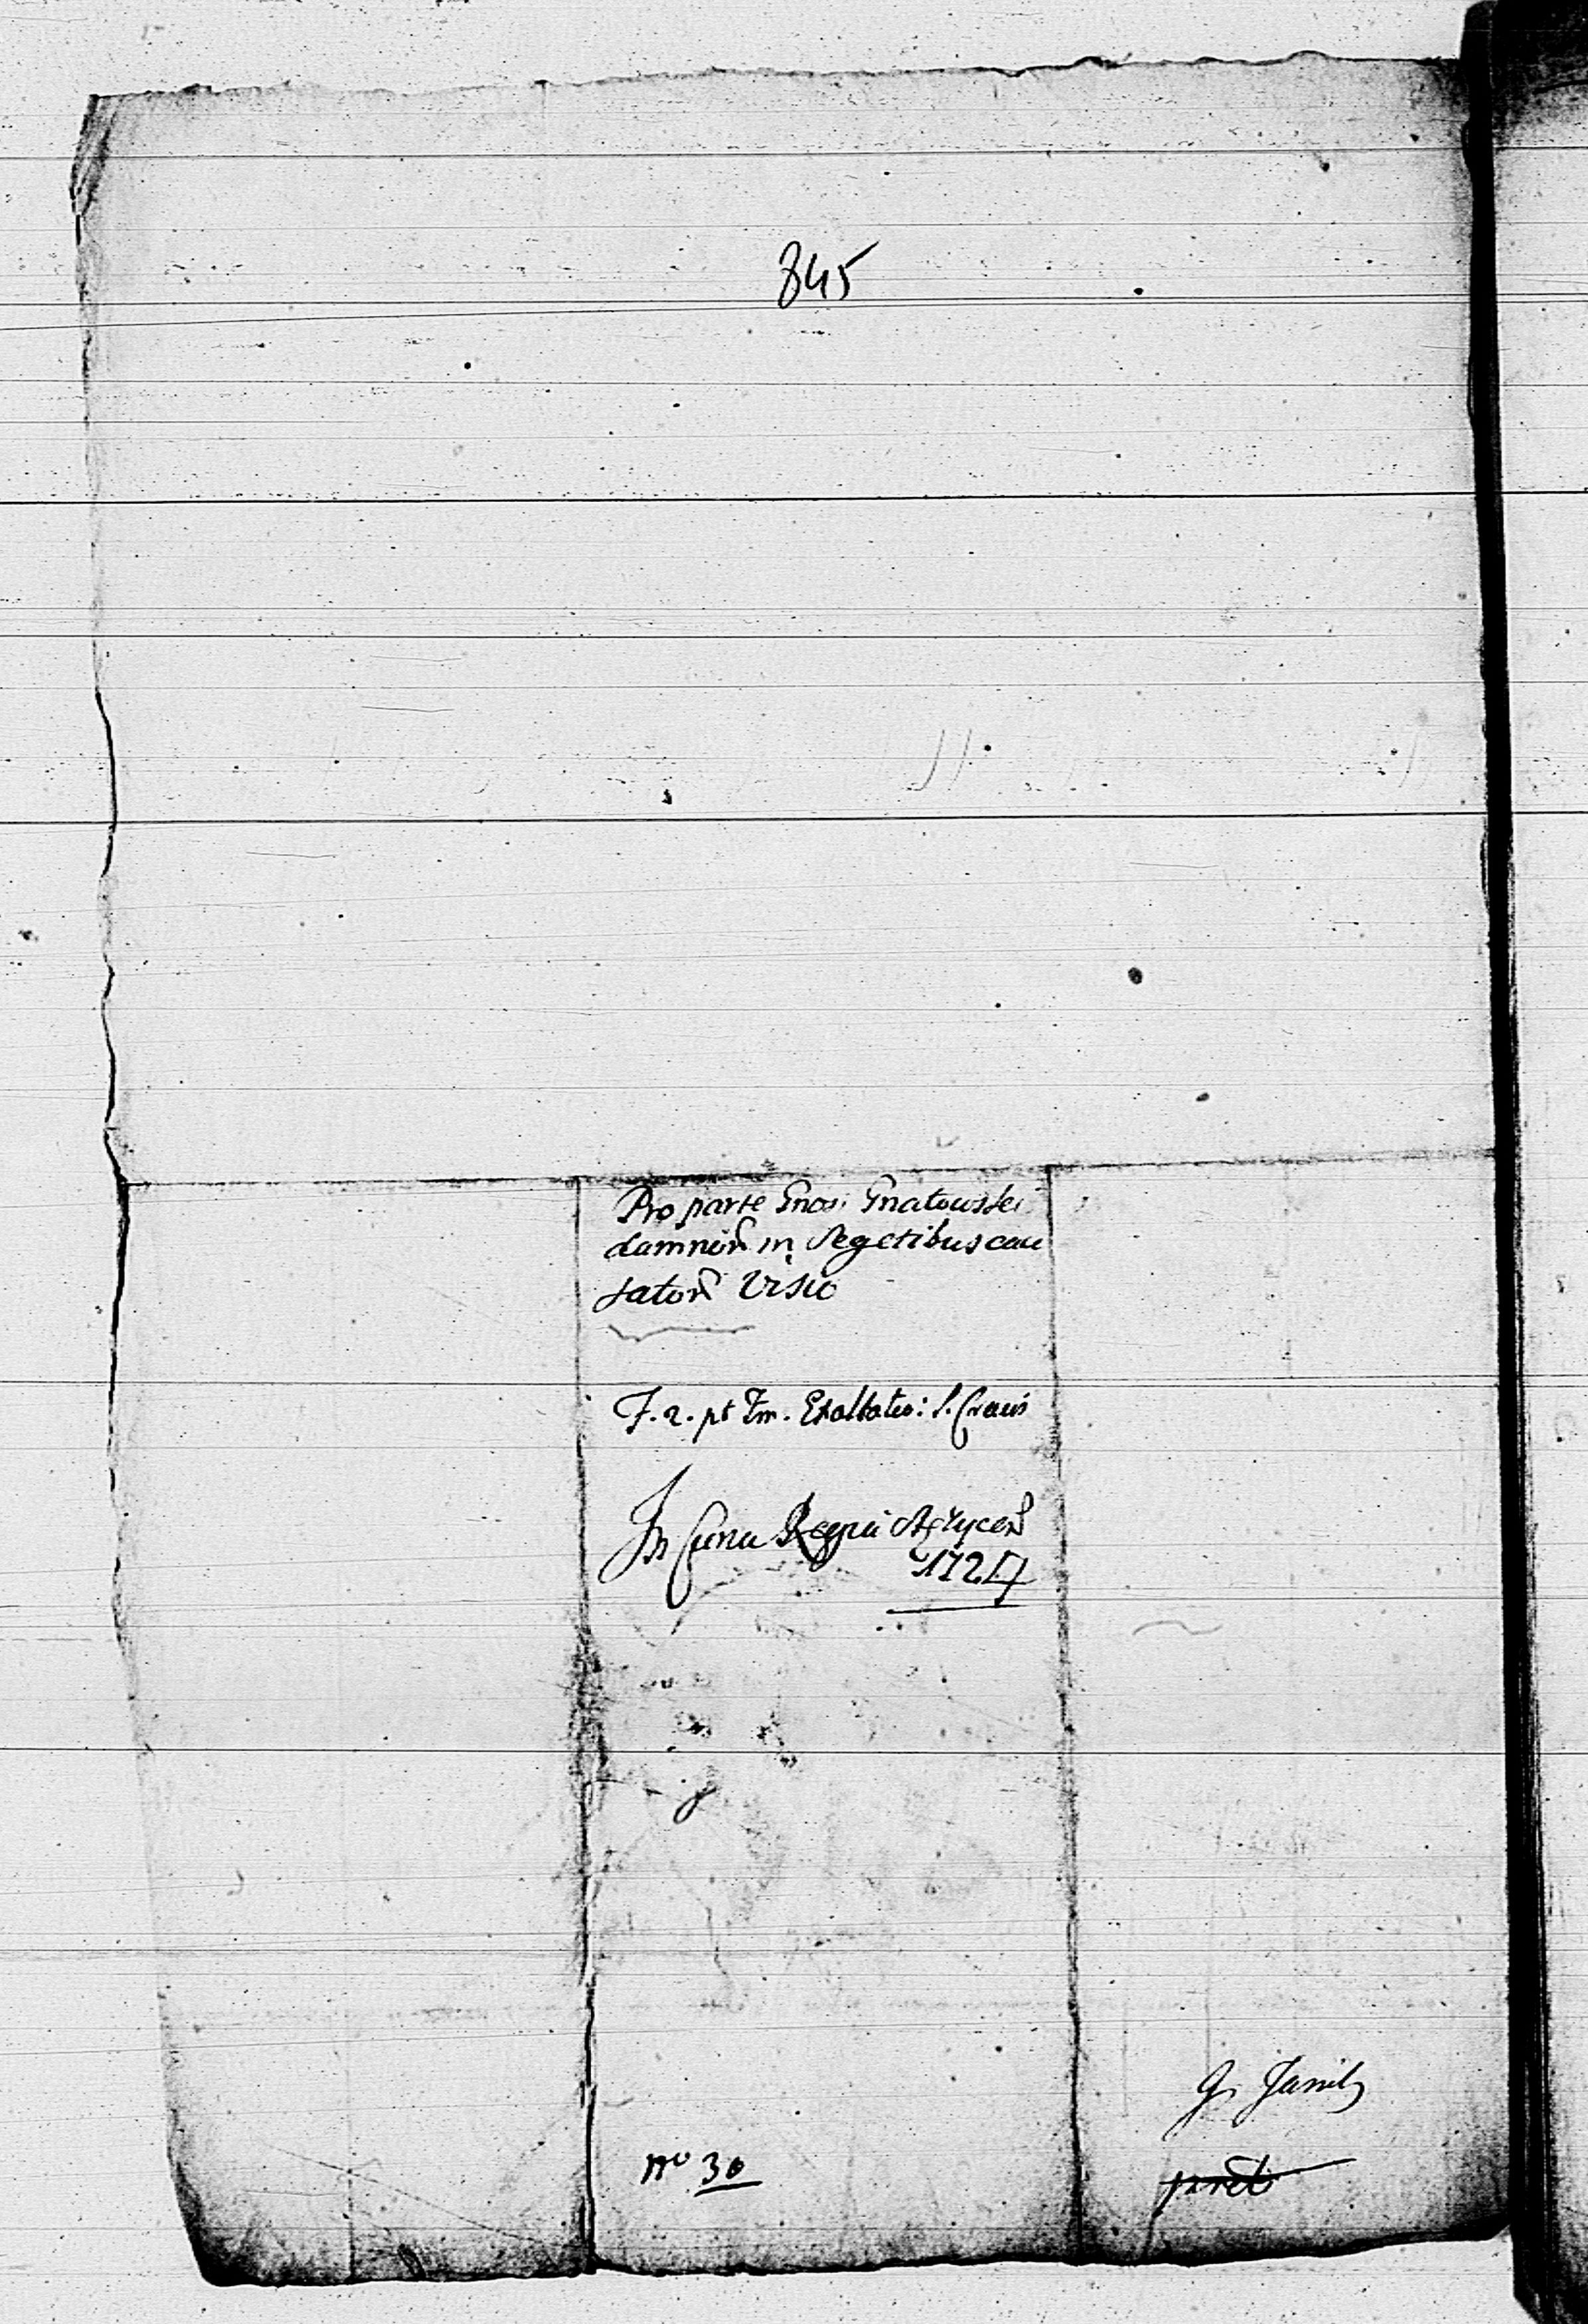 845
Pro parte Gnosi Gnatowski
damnorū in Segetibus cau
satorū Visio
F. 2. pt Fm. Exaltatio: S. Crucis
In Curia Regia
1724
No 30
G.